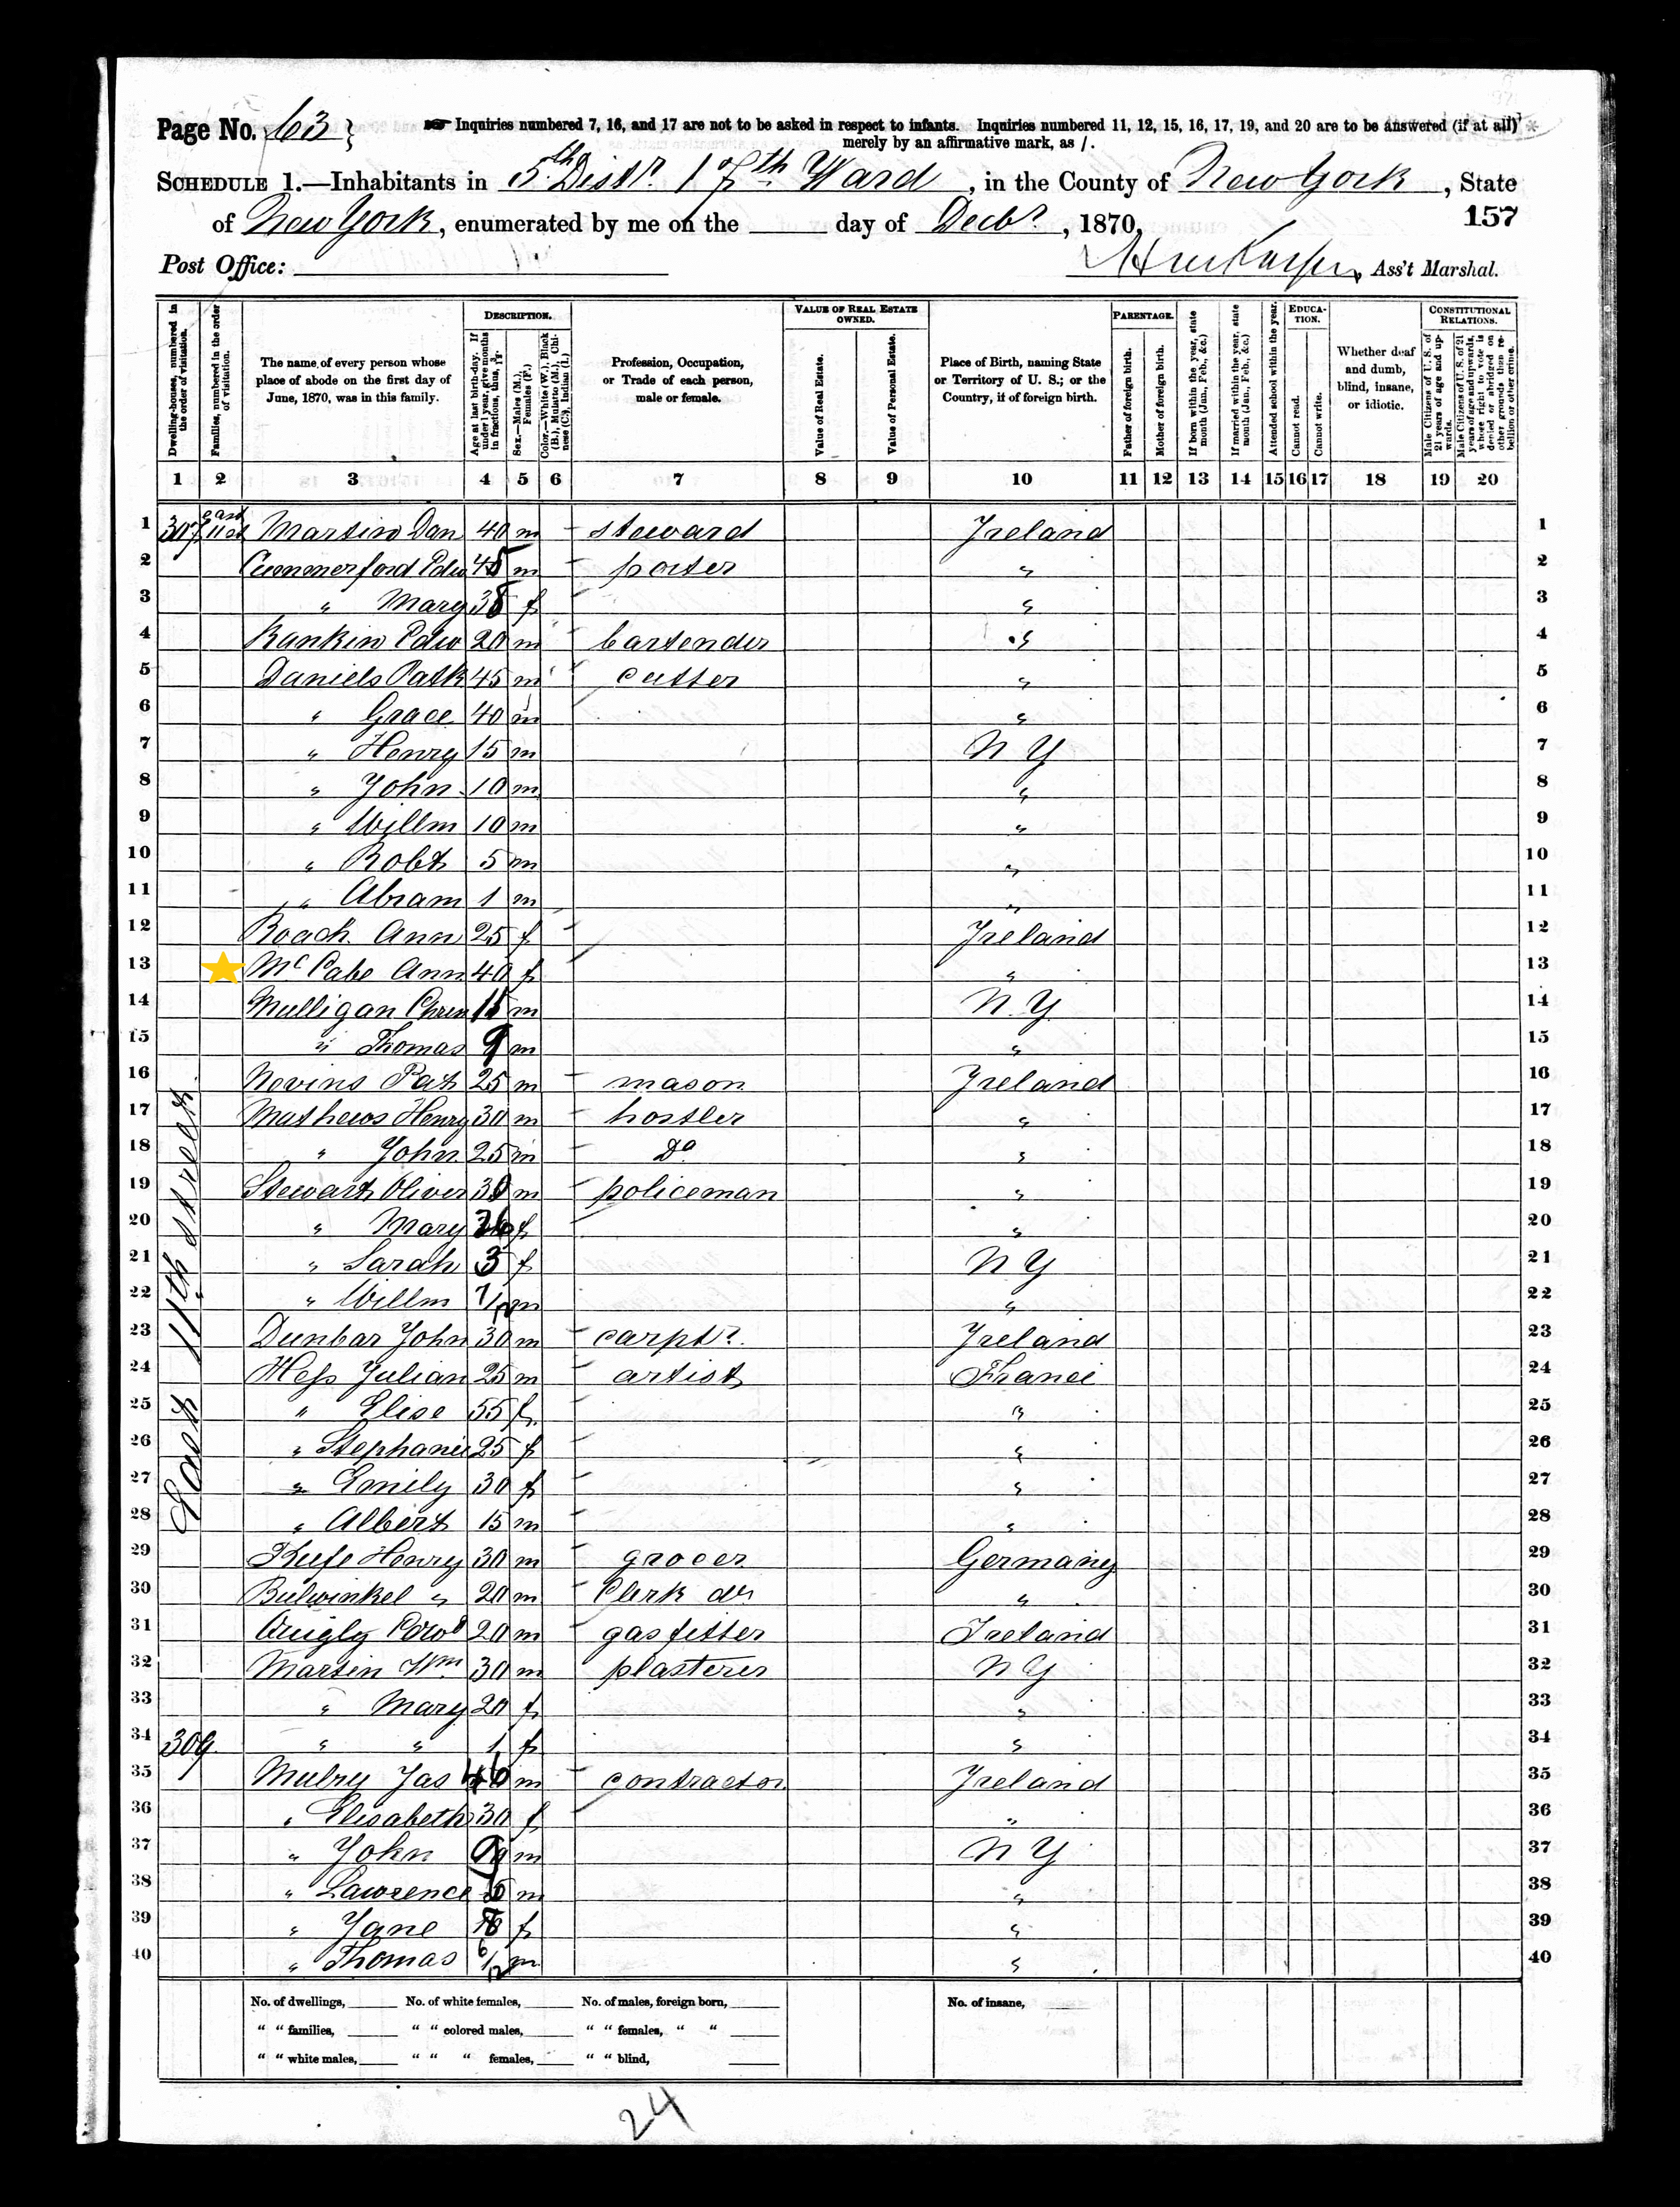 Page No. 63
☞ Inquiries numbered 7, 16, and 17 are not to be asked in respect to infants. Inquiries numbered 11, 12, 15, 16, 17, 19, and 20 are to be answered (if at all)
merely by an affirmative mark, as /.
SCHEDULE 1.—Inhabitants in 5th Distr. 17th Ward, in the County of New York, State
of New York, enumerated by me on the ___ day of Decbr, 1870,
157
Post Office:
Ass't Marshal.
Dwelling-houses, numbered in the order of visitation.
Families, numbered in the order of visitation.
The name of every person whose place of abode on the first day of June, 1870, was in this family.
DESCRIPTION.
Age at last birth-day. If under 1 year, give months in fractions, thus, 3/12.
Sex.—Males (M.), Females (F.)
Color.—White (W.), Black (B.), Mulatto (M.), Chinese (C.), Indian (I.)
Profession, Occupation, or Trade of each person, male or female.
VALUE OF REAL ESTATE OWNED.
Value of Real Estate.
Value of Personal Estate.
Place of Birth, naming State or Territory of U. S.; or the Country, if of foreign birth.
PARENTAGE.
Father of foreign birth.
Mother of foreign birth.
If born within the year, state month (Jan., Feb., &c.)
If married within the year, state month (Jan., Feb., &c.)
Attended school within the year.
EDUCATION.
Cannot read.
Cannot write.
Whether deaf and dumb, blind, insane, or idiotic.
CONSTITUTIONAL RELATIONS.
Male Citizens of U. S. of 21 years of age and upwards.
Male Citizens of U. S. of 21 years of age and upwards, whose right to vote is denied or abridged on other grounds than rebellion or other crime.
1 2 3 4 5 6 7 8 9 10 11 12 13 14 15 16 17 18 19 20
1 307 east 11 st Martin Dan 40 m steward Ireland 1
2 Cummerford Edw 45 m porter " 2
3 " Mary 38 f " 3
4 Rankin Edw 20 m bartender " 4
5 Daniels Patk 45 m cutter " 5
6 " Grace 40 m " 6
7 " Henry 15 m N Y 7
8 " John 10 m " 8
9 " Willm 10 m " 9
10 " Robt 5 m " 10
11 " Abram 1 m " 11
12 Roach Ann 25 f Ireland 12
13 McCabe Ann 40 f " 13
14 Mulligan 15 m N. Y. 14
15 " Thomas 9 m " 15
16 Nevins Pat 25 m mason Ireland 16
17 Mathews Henry 30 m hostler " 17
18 " John 25 m Do " 18
19 Stewart Oliver 30 m policeman " 19
20 " Mary f " 20
21 " Sarah 3 f N Y 21
22 " Willm 7/12 m " 22
23 Dunbar John 30 m carptr. Ireland 23
24 Hess Julian 25 m artist France 24
25 " Elise 55 f " 25
26 " Stephanie 25 f " 26
27 " Emily 30 f " 27
28 " Albert 15 m " 28
29 Henry 30 m grocer Germany 29
30 Bulwinkel " 20 m Clerk do " 30
31 Quigly Edwd 20 m gasfitter Ireland 31
32 Martin Wm 30 m plasterer N Y 32
33 " Mary 20 f " 33
34 309 " " 1 f " 34
35 Mulry Jas 46 m contractor Ireland 35
36 " Elisabeth 30 f " 36
37 " John 9 m N Y 37
38 " Lawrence m " 38
39 " Jane f " 39
40 " Thomas 6/12 m " 40
East 11th street
No. of dwellings, ___ No. of white females, ___ No. of males, foreign born, ___ No. of insane, ___
" " families, ___ " " colored males, ___ " " females, " " ___
" " white males, ___ " " " females, ___ " " blind, ___
24